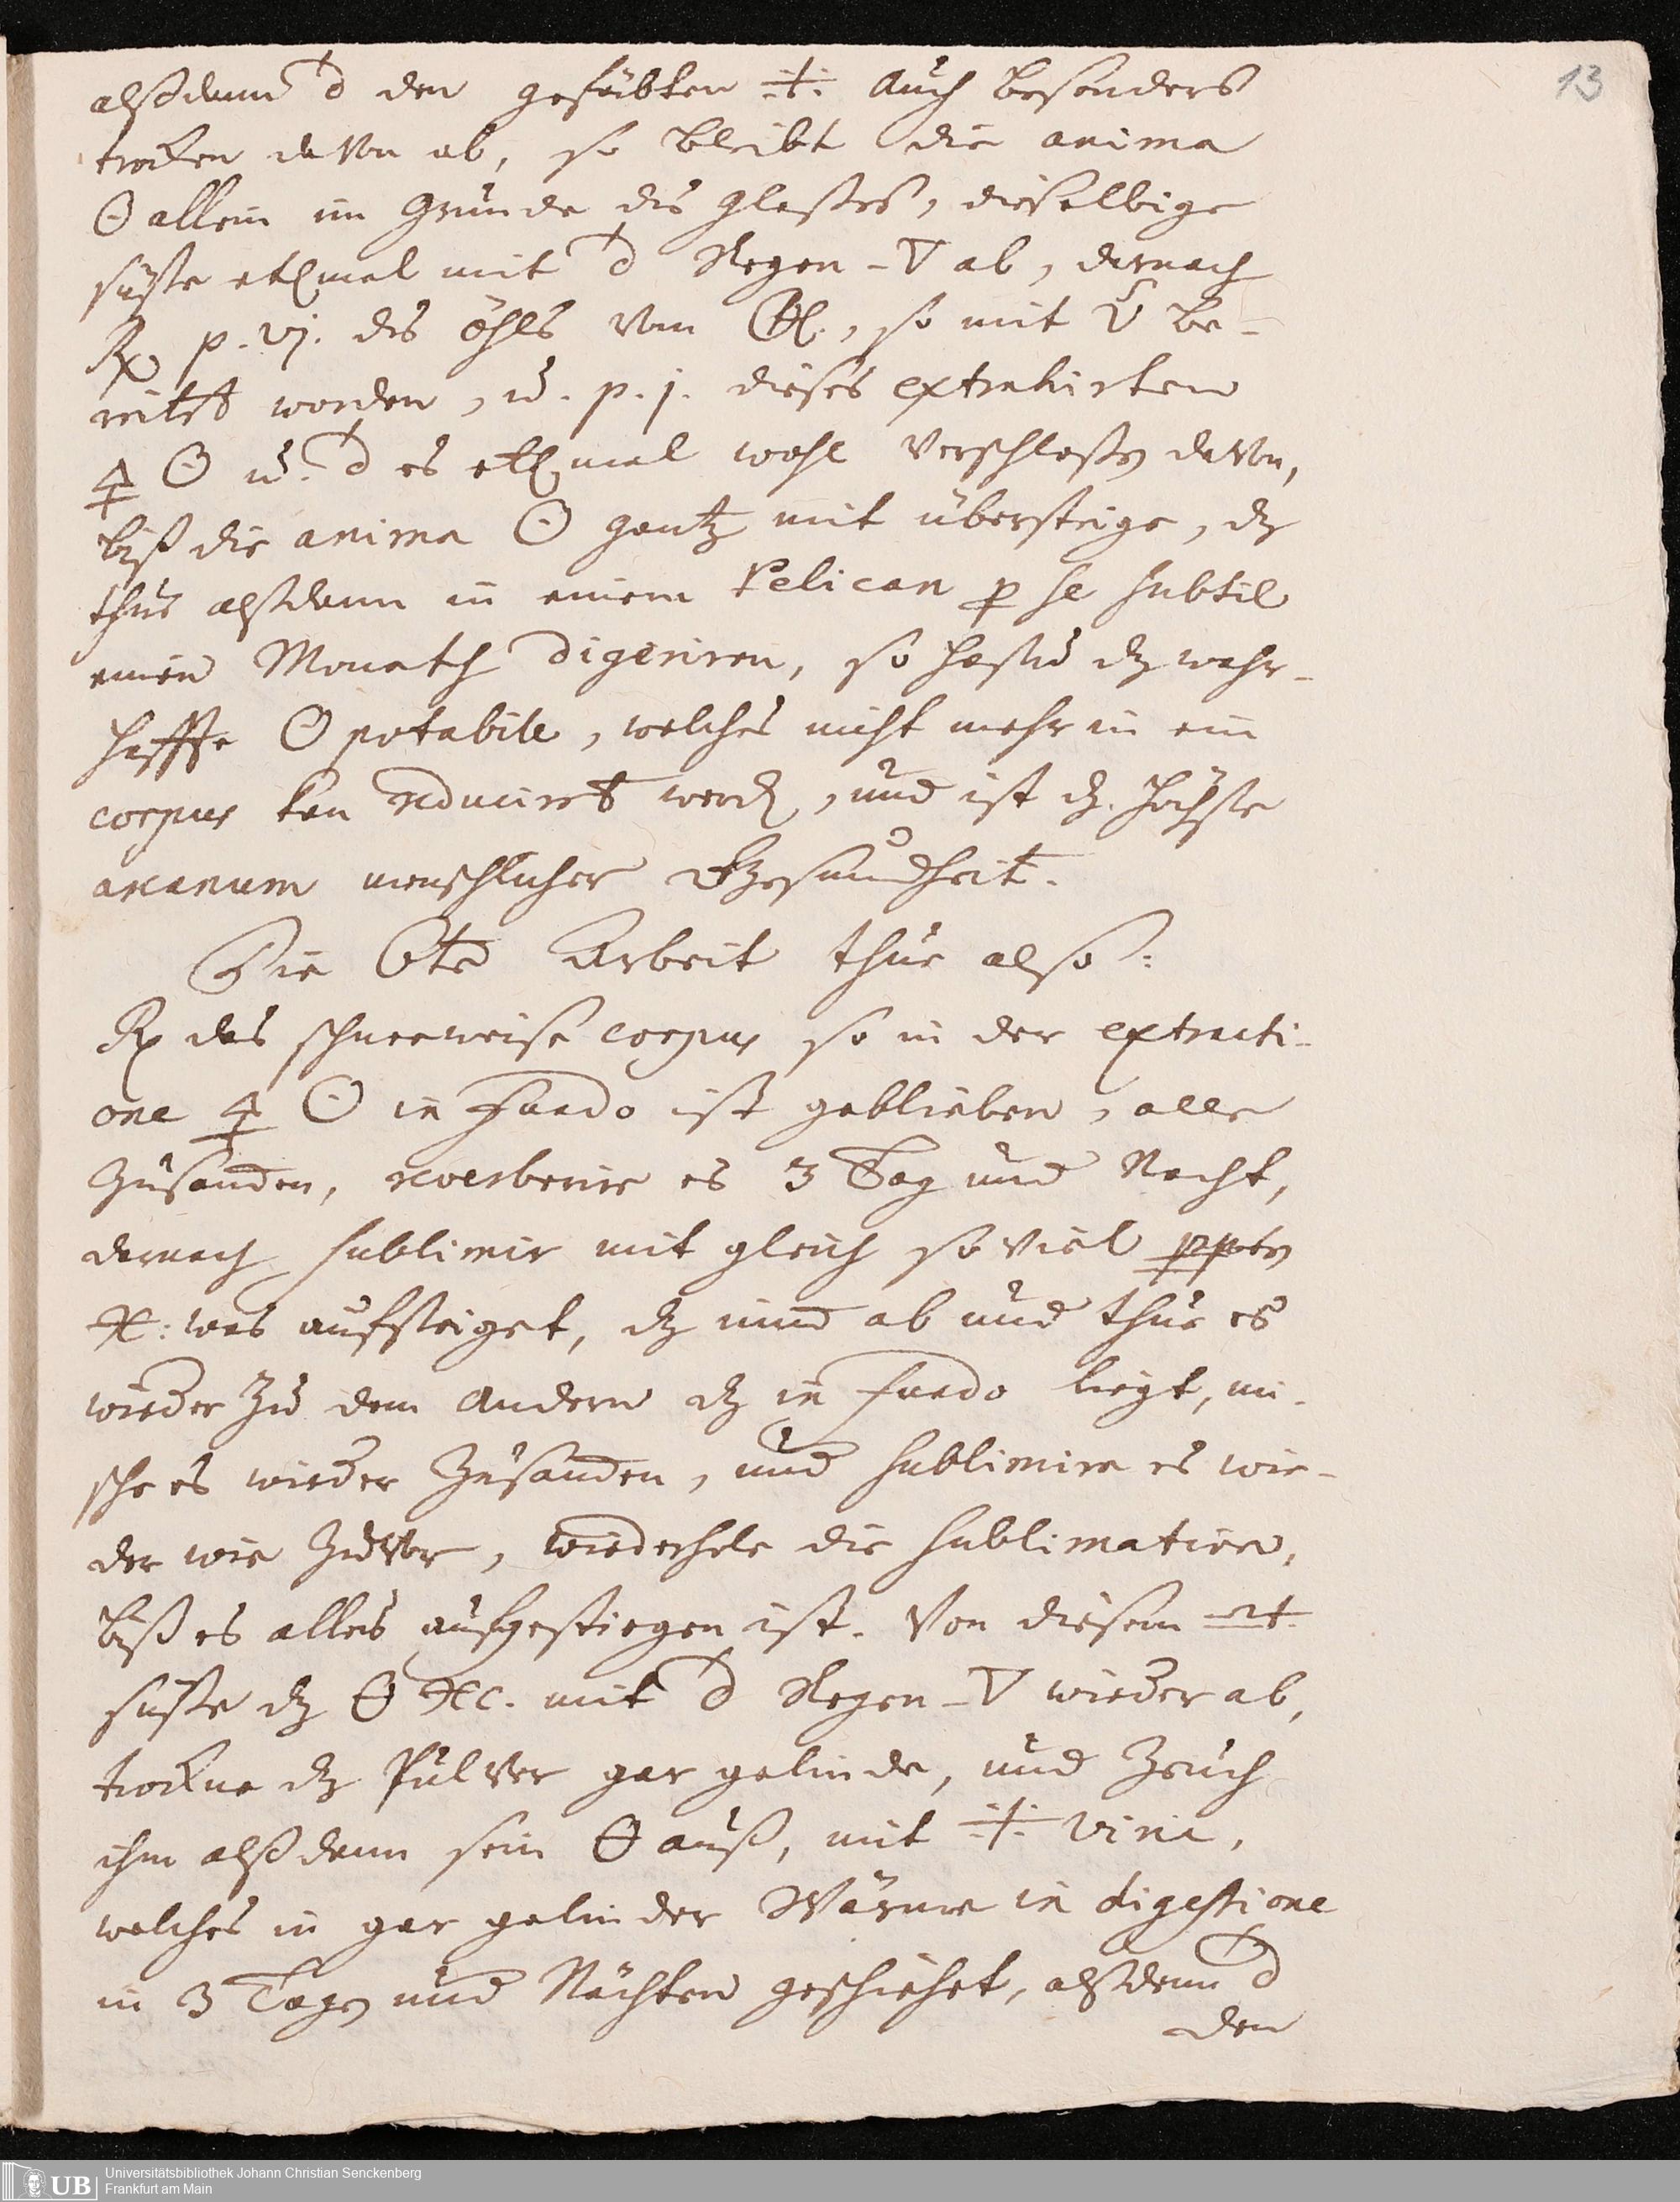 13
alßdann d den gefärbten ·/.· auch besonders
trocken davon ab, so bleibt die anima
☉ allein im Grunde des Glaßes, dieselbige
süsse etl. mal mit d Regen-▽ ab, darnach
℞ p. vj. des öhls vom, so mit be-
reitet worden, u. p. j. dieses extrahirten
🜍 ☉ u. d es etl. mal wohl verschloßen davon,
biß die anima ☉ gantz mit übersteige, dz
thue alßdann in einem Pelican p se subtil
einen Monath digeriren, so hastu dz wahr-
haffte ☉ potabile, welches nicht mehr in ein
corpus kan reducirt werden, und ist dz höchste
arcanum menschlicher Gesundheit.
Die 6te Arbeit thue also:
℞ das schneeweise corpus so in der extracti-
one 🜍 ☉ in fundo ist geblieben, alle
zusammen, reverberire es 3 Tag und Nacht,
darnach sublimir mit gleich so viel
✶: was aufsteiget, dz nimb ab und thue es
wieder zu dem andern dz in fundo liegt, mi-
sche es wieder zusammen, und sublimire es wie-
der wie zuvor, wiederhole die sublimation,
biß es alles aufgestiegen ist. Von diesem
süsse dz 🜔 ✶c. mit d Regen-▽ wieder ab,
trockne dz Pulver gar gelinde, und Zeuch
ihm alßdann sein 🜔 auß, mit ·/.· vini,
welches in gar gelinder Wärme in digestione
in 3 Tagen und Nächten geschiehet, alßdann d
den
UB Universitätsbibliothek Johann Christian Senckenberg
Frankfurt am Main